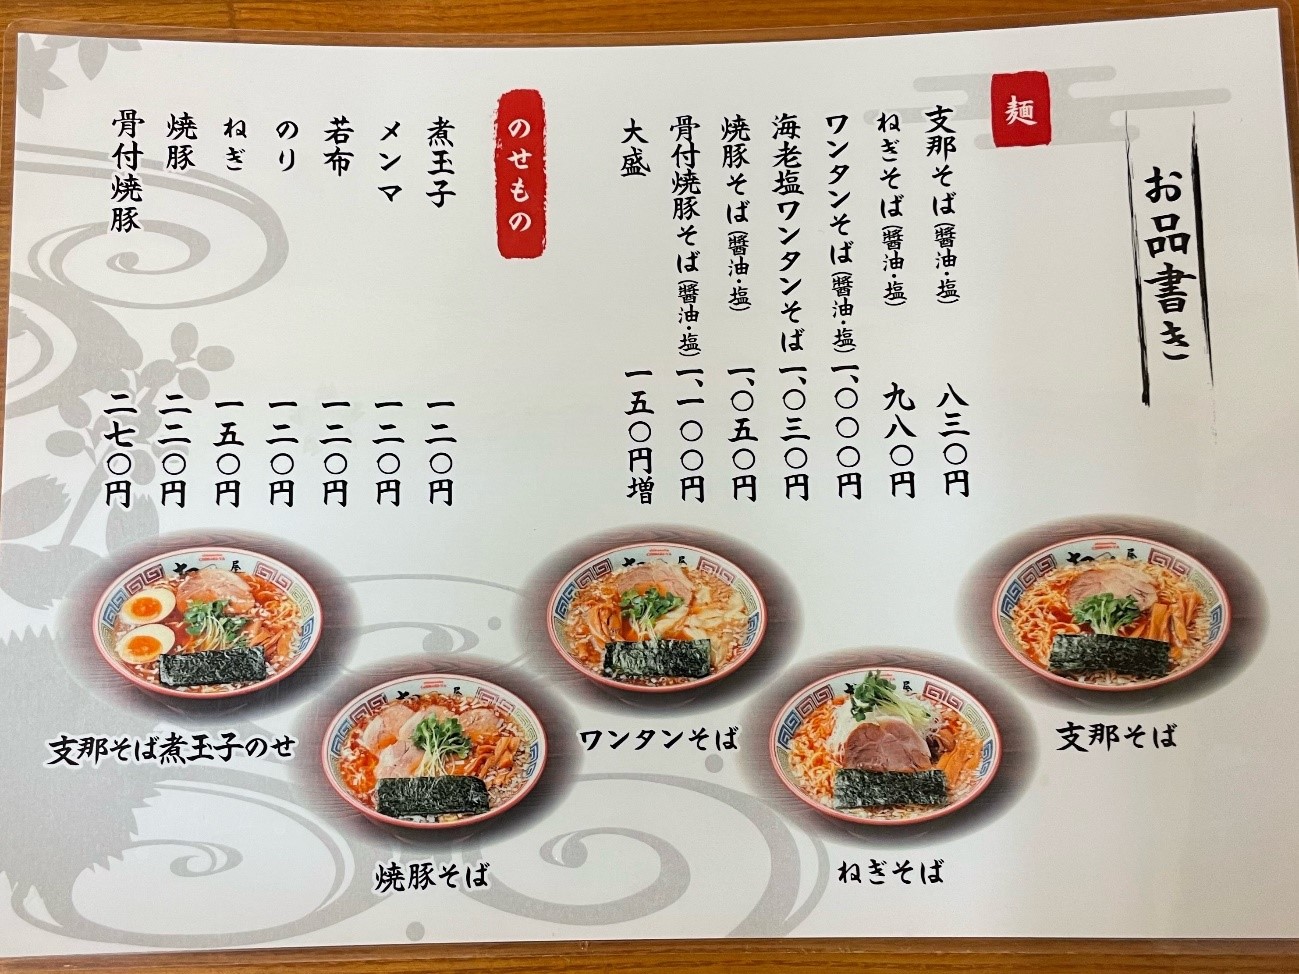 お品書き
麺
支那そば(醤油・塩) 八三〇円
ねぎそば(醤油・塩) 九八〇円
ワンタンそば(醤油・塩) 一、〇〇〇円
海老塩ワンタンそば 一、〇三〇円
焼豚そば(醤油・塩) 一、〇五〇円
骨付焼豚そば(醤油・塩) 一、一〇〇円
大盛 一五〇円増
のせもの
煮玉子 一二〇円
メンマ 一二〇円
若布 一二〇円
のり 一二〇円
ねぎ 一五〇円
焼豚 二二〇円
骨付焼豚 二七〇円
支那そば
ねぎそば
ワンタンそば
焼豚そば
支那そば煮玉子のせ